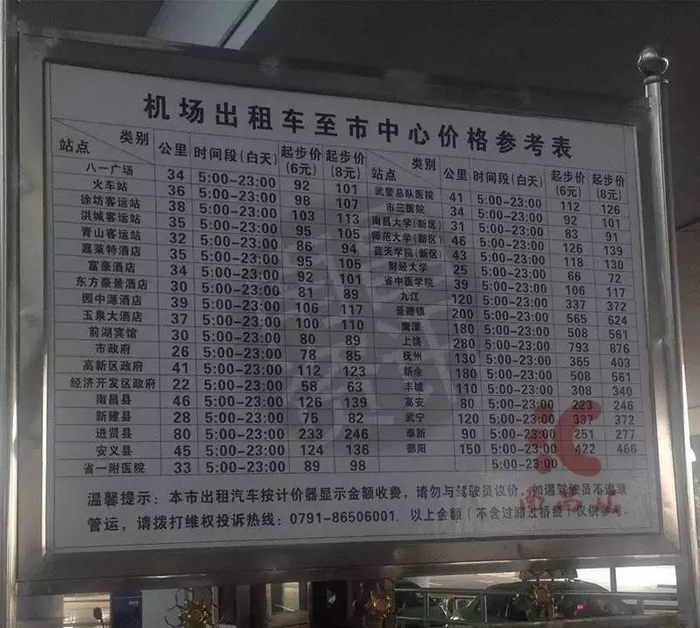 机场出租车至市中心价格参考表
站点 类别 公里 时间段(白天) 起步价(6元) 起步价(8元) 站点 类别 公里 时间段(白天) 起步价(6元) 起步价(8元)
八一广场 34 5:00-23:00 92 101 武警总队医院 41 5:00-23:00 112 126
火车站 36 5:00-23:00 98 107 市三医院 34 5:00-23:00 92 101
徐坊客运站 38 5:00-23:00 103 113 南昌大学(新区) 31 5:00-23:00 83 91
洪城客运站 35 5:00-23:00 95 105 师范大学(新区) 46 5:00-23:00 126 139
青山客运站 32 5:00-23:00 86 94 蓝天学院(新区) 43 5:00-23:00 118 130
嘉莱特酒店 35 5:00-23:00 95 105 财经大学 25 5:00-23:00 66 72
富豪酒店 34 5:00-23:00 92 101 省中医学院 39 5:00-23:00 106 117
东方豪景酒店 30 5:00-23:00 81 89 九江 120 5:00-23:00 337 372
园中源酒店 39 5:00-23:00 106 117 景德镇 200 5:00-23:00 565 624
玉泉大酒店 37 5:00-23:00 100 110 鹰潭 180 5:00-23:00 508 561
前湖宾馆 30 5:00-23:00 80 89 上饶 280 5:00-23:00 793 876
市政府 26 5:00-23:00 78 85 抚州 130 5:00-23:00 365 403
高新区政府 41 5:00-23:00 112 123 新余 180 5:00-23:00 508 561
经济开发区政府 22 5:00-23:00 58 63 丰城 110 5:00-23:00 308 340
南昌县 46 5:00-23:00 126 139 高安 80 5:00-23:00 223 246
新建县 28 5:00-23:00 75 82 武宁 120 5:00-23:00 337 372
进贤县 80 5:00-23:00 233 246 奉新 90 5:00-23:00 251 277
安义县 45 5:00-23:00 124 136 鄱阳 150 5:00-23:00 422 466
省一附医院 33 5:00-23:00 89 98 5:00-23:00
温馨提示：本市出租汽车按计价器显示金额收费，请勿与驾驶员议价，如遇驾驶员不愿意
管运，请拨打维权投诉热线：0791-86506001．以上金额（不含过路过桥费）仅供参考